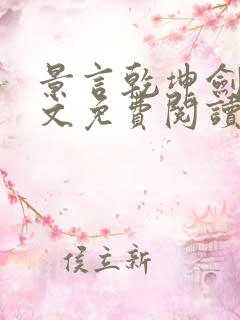 景言乾坤劍
文免費閱讀
侯立新